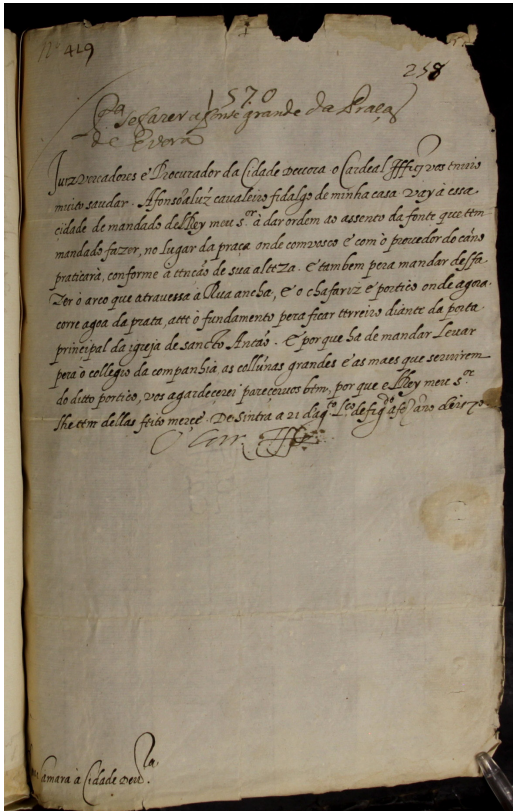 Nº 419
258
1570
Pª se fazer a fonte grande da Praça
de Evora
Juiz vereadores e Procurador da Cidade Deuora. o Cardeal Iffte vos enuio
muito saudar. Afonso aluz caualeiro fidalgo de minha casa. vay à essa
cidade de mandado delRey meu s.or à dar ordem ao assento da fonte que tem
mandado fazer, no lugar da praça onde comvosco e com o proueedor do cano
praticarà, conforme à tenção de sua alteza. E tambem pera mandar desfa
zer o arco que atravessa à Rua ancha, e o chafariz e portico onde agora
corre agoa da prata, atte o fundamento pera ficar terreiro diante da porta
principal da igreja de sancto Antão. E porque ha de mandar Leuar
pera o collegio da companhia, as collunas grandes e as maes que servirem
do ditto portico, vos agardecerei pareçeruos bem, por que elRey meu s.or
lhe tem dellas feito merçe. De Sintra a 21 dag.to ano de 1570
O Car. Iffte
Camara à Cidade Deuª.